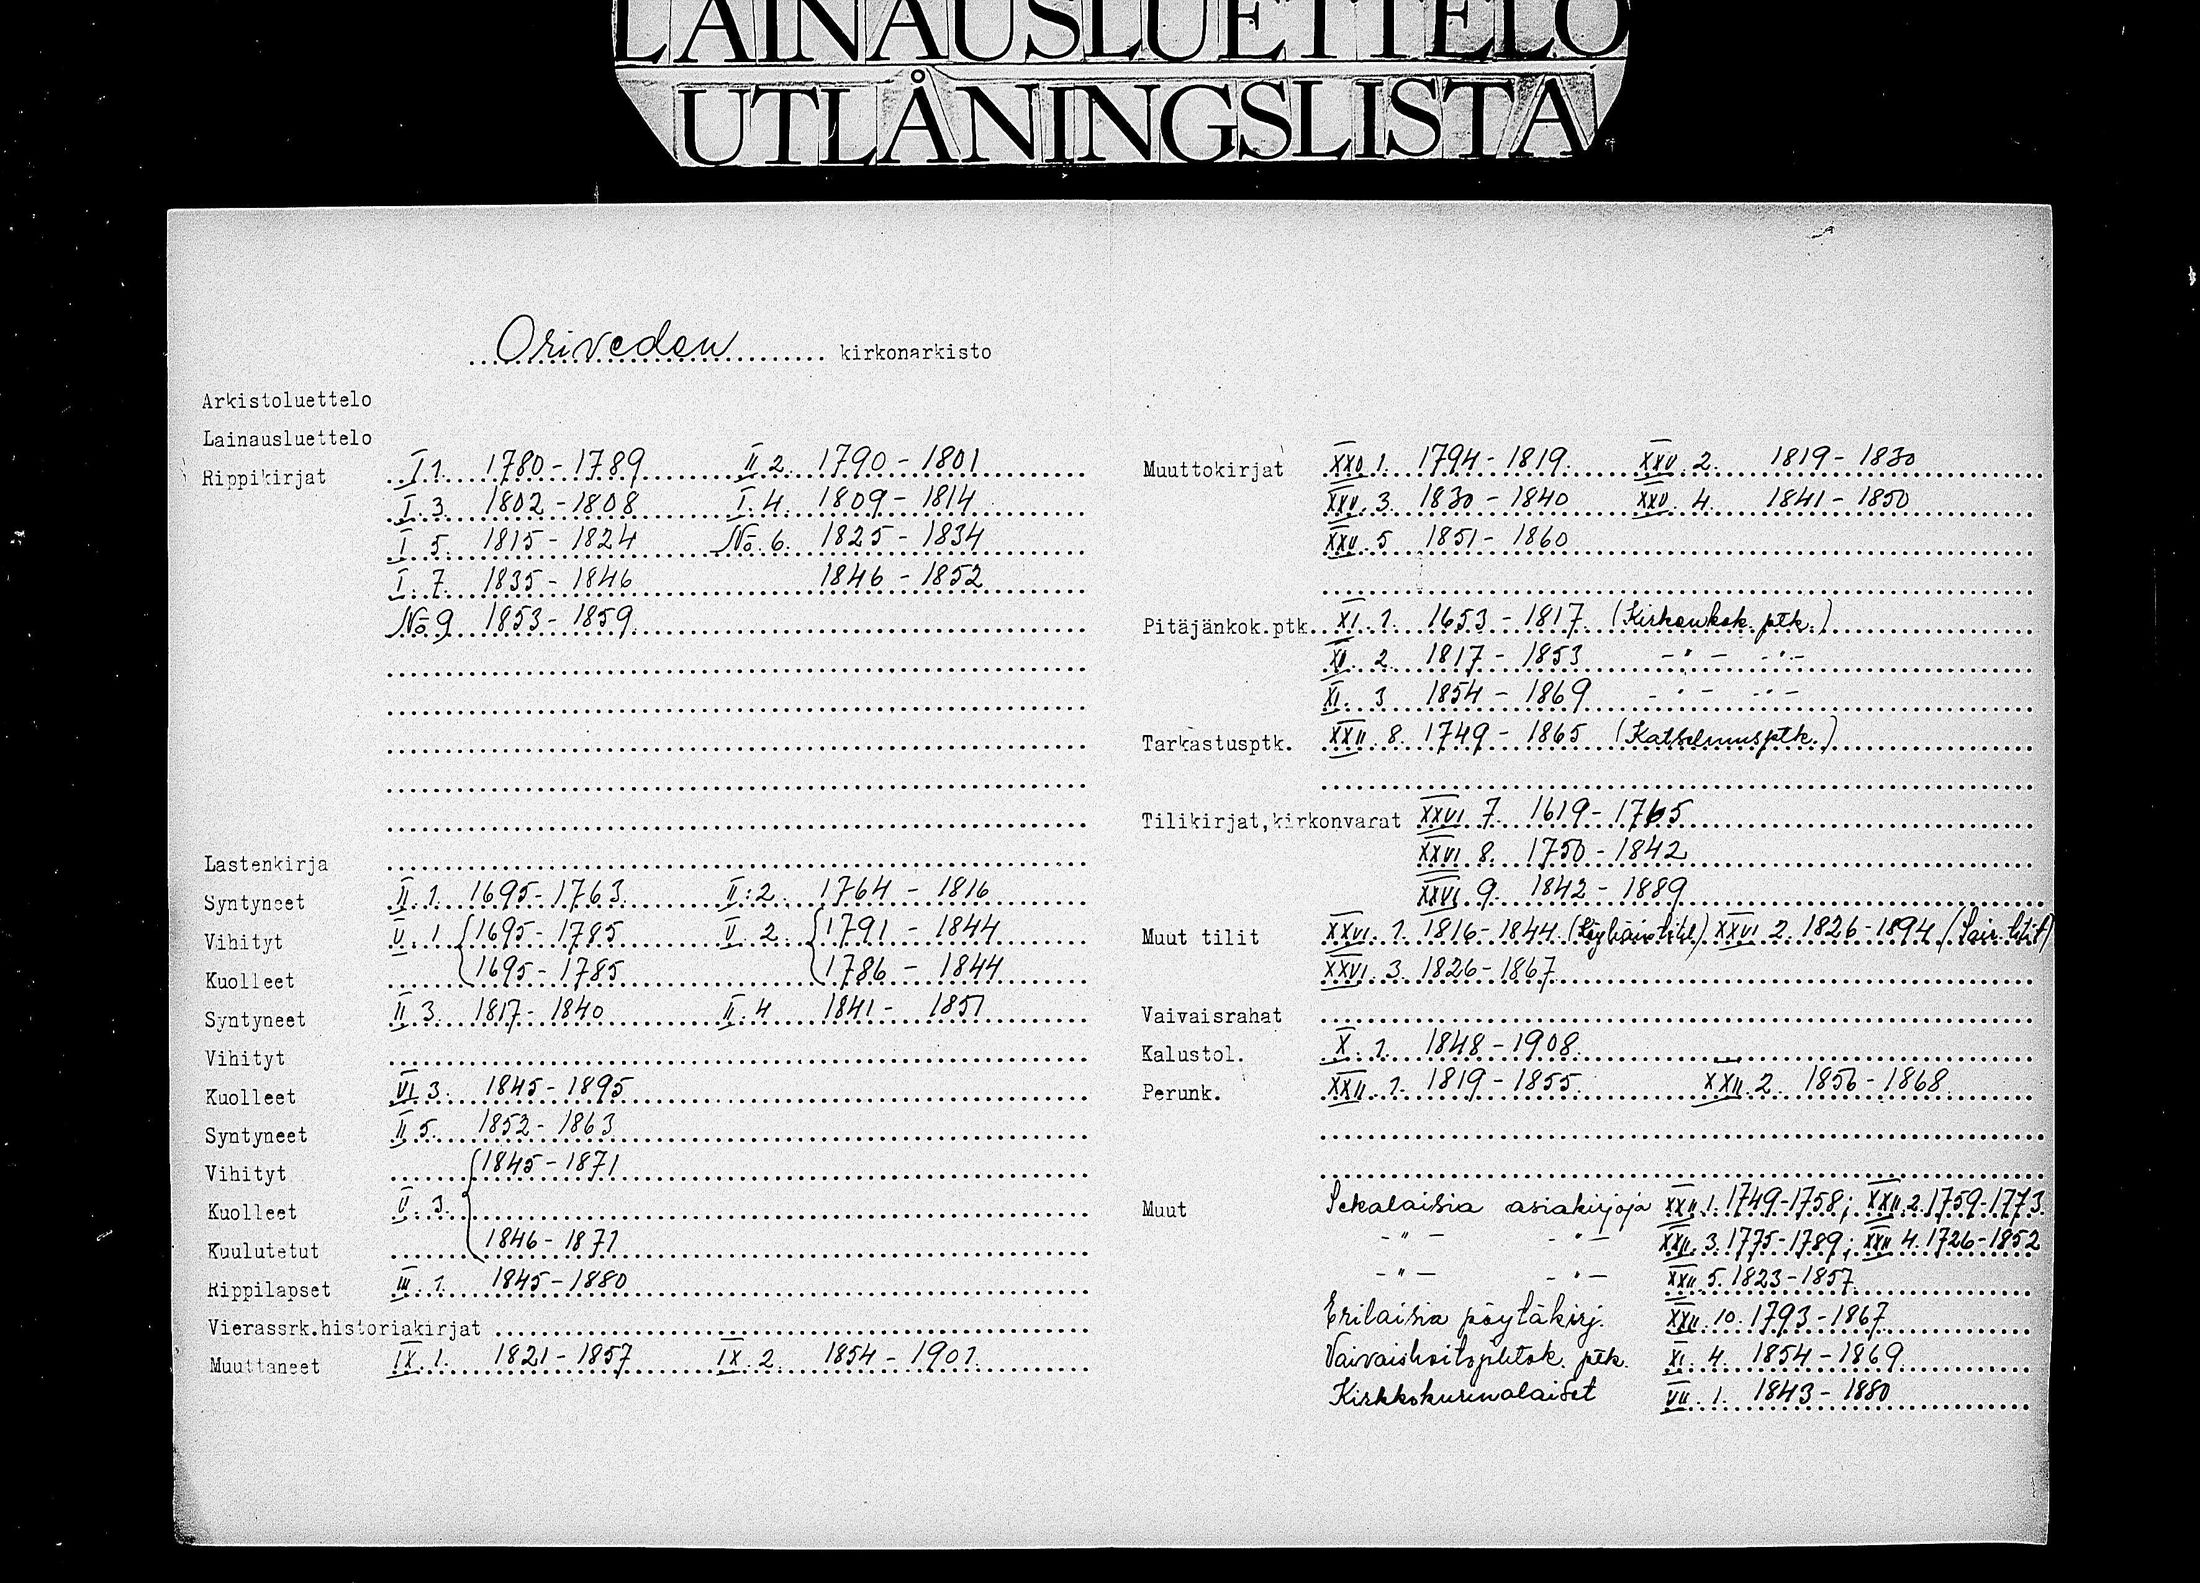 LAINAUSLUETTELO
UTLÅNINGSLISTA
Oriveden kirkonarkisto
Arkistoluettelo
Lainausluettelo
Rippikirjat I 1. 1780-1789 II 2. 1790-1801
I. 3. 1802-1808 I. 4. 1809-1814
I. 5. 1815-1824 No. 6. 1825-1834
I. 7. 1835-1846 1846-1852
No 9 1853-1859
Lastenkirja
Syntyneet II. 1. 1695-1763 II: 2. 1764-1816
Vihityt V. 1 1695-1785 V. 2. 1791-1844
Kuolleet 1695-1785 1786-1844
Syntyneet II 3. 1817-1840 II. 4 1841-1851
Vihityt
Kuolleet VI 3. 1845-1895
Syntyneet II 5. 1852-1863
Vihityt 1845-1871
Kuolleet V. 3.
Kuulutetut 1846-1871
Rippilapset III. 1. 1845-1880
Vierassrk.historiakirjat
Muuttaneet IX. 1. 1821-1857 IX. 2. 1854-1901
Muuttokirjat XXV 1. 1794-1819 XXV. 2. 1819-1830
XXV. 3. 1830-1840 XXV. 4. 1841-1850
XXV. 5 1851-1860
Pitäjänkok.ptk. XI. 1. 1653-1817 (Kirkonkok. ptk.)
XI. 2. 1817-1853 -"- -"-
XI. 3 1854-1869 -"- -"-
Tarkastusptk. XXII. 8. 1749-1865 (Katselmusptk.)
Tilikirjat,kirkonvarat XXVI 7. 1619-1765
XXVI 8. 1750-1842
XXVI 9. 1842-1889
Muut tilit XXVI. 1. 1816-1844 XXVI 2. 1826-1894
XXVI. 3. 1826-1867
Vaivaisrahat
Kalustol. X. 1. 1848-1908
Perunk. XXII. 1. 1819-1855 XXII. 2. 1856-1868
Muut Sekalaisia asiakirjoja XXII. 1. 1749-1758; XXII. 2. 1759-1773
-"- -"- XXII. 3. 1775-1789; XXII 4. 1726-1852
-"- -"- XXII. 5. 1823-1857
Erilaisia pöytäkirj. XXII. 10. 1793-1867
Vaivaishoito ptk. XI. 4. 1854-1869
Kirkkokurinalaiset VII. 1. 1843-1880